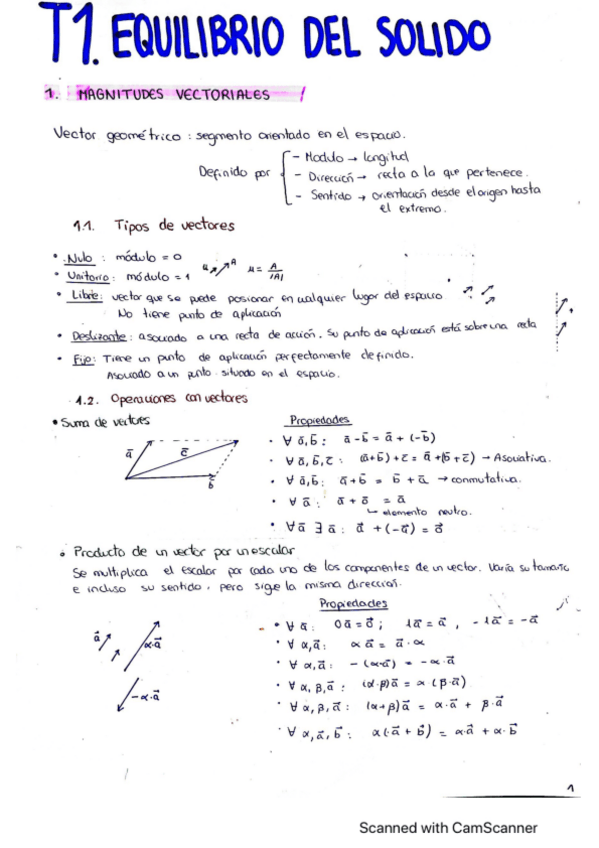 T1. EQUILIBRIO DEL SOLIDO
1. MAGNITUDES VECTORIALES
Vector geométrico : segmento orientado en el espacio.
Definido por
- Modulo → longitud
- Dirección → recta a la que pertenece.
- Sentido → orientación desde el origen hasta
el extremo.
1.1. Tipos de vectores
• Nulo : módulo = 0
• Unitario : módulo = 1
u A u = A / |A|
• Libre : vector que se puede posionar en cualquier lugar del espacio
No tiene punto de aplicación
• Deslizante : asociado a una recta de acción. Su punto de aplicación está sobre una recta
• Fijo : Tiene un punto de aplicación perfectamente definido.
Asociado a un punto situado en el espacio.
1.2. Operaciones con vectores
• Suma de vectores
a c b
Propiedades
• ∀ a, b : a - b = a + (-b)
• ∀ a, b, c : (a+b) + c = a + (b+c) → Asociativa.
• ∀ a, b : a + b = b + a → conmutativa.
• ∀ a : a + o = a
↳ elemento neutro.
• ∀ a ∃ a : a + (-a) = 0
• Producto de un vector por un escalar
Se multiplica el escalar por cada uno de los componentes de un vector. Varía su tamaño
e incluso su sentido, pero sigue la misma dirección.
a α·a -α·a
Propiedades
• ∀ a : 0a = 0 ; 1a = a , -1a = -a
• ∀ α, a : α a = a · α
• ∀ α, a : -(αa) = -α·a
• ∀ α, β, a : (α·β)a = α (β·a)
• ∀ α, β, a : (α+β)a = α·a + β·a
• ∀ α, a, b : α(·a + b) = α·a + α·b
1
Scanned with CamScanner